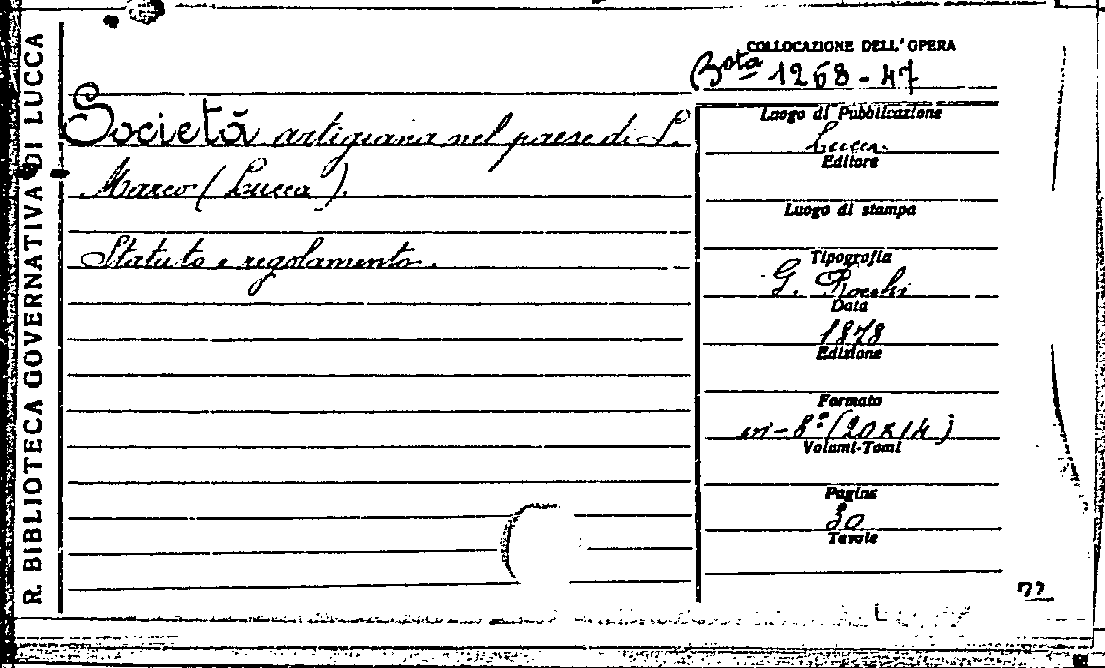 R. BIBLIOTECA GOVERNATIVA DI LUCCA
COLLOCAZIONE DELL'OPERA
Bta 1268-47
Società artigiana nel paese di S.
Marco (Lucca).
Statuto e regolamento.
Luogo di Pubblicazione
Lucca.
Editore
Luogo di stampa
Tipografia
G. Rocchi
Data
1878
Edizione
Formato
in-8° (20x14)
Volumi-Tomi
Pagine
30
Tavole